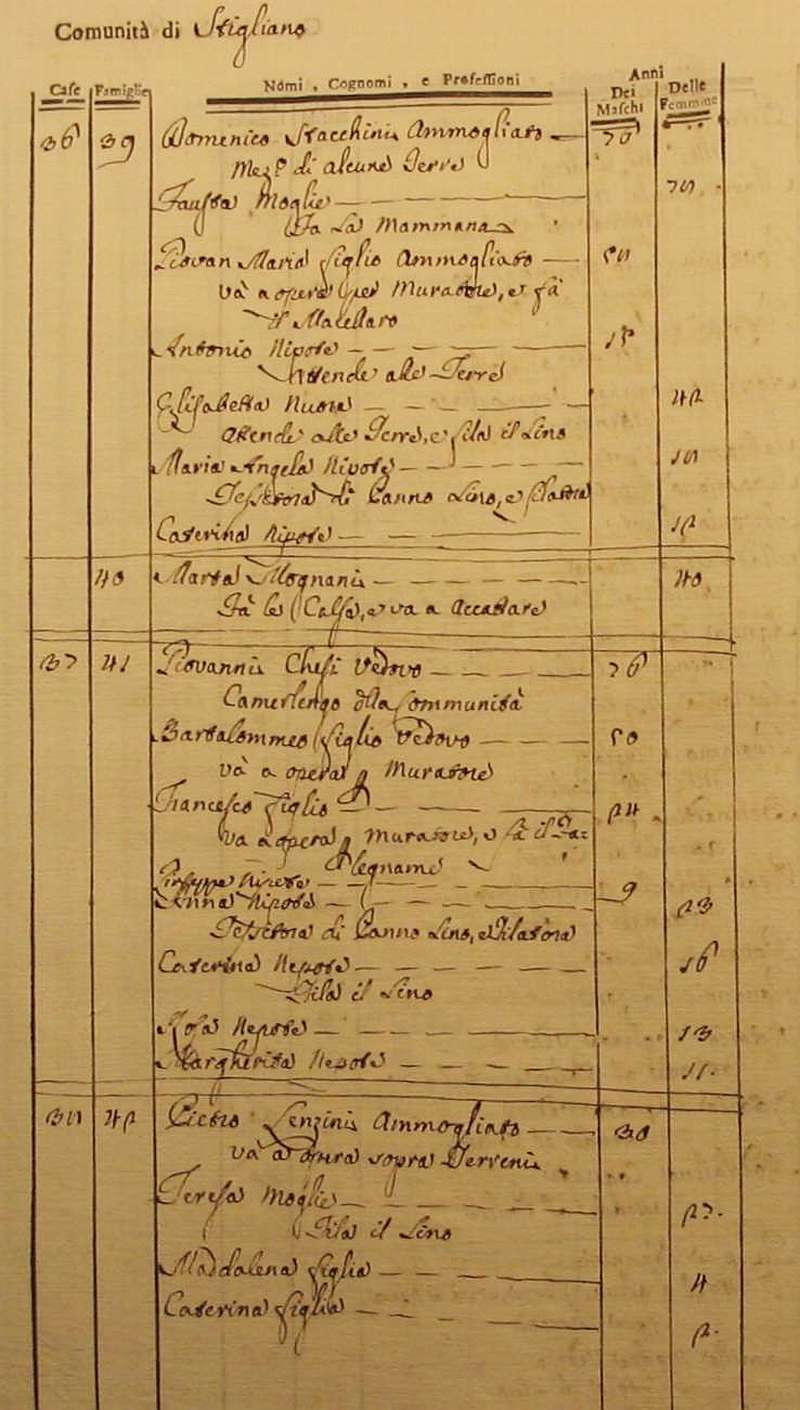 Comunità di Stigliano
Case Famiglie Nomi , Cognomi , e Professioni Anni
Dei Maschi Delle Femmine
36 39 Domenico Stacchini Ammogliato
di alcune Terre
Fausta Moglie 78
Fa la Mammana
Giovan Maria figlio Ammogliato 58
Và a opera per Muratore, e fà
il Macellaro
Antonio Nipote 15
Attende alle Terre
Elisabetta Nuora 42
Attende alle Terre, e fila il Lino
Maria Angela Nipote 18
Tessitora di Panno Lino, e
Caterina Nipote 12
40 Marta Mognani 40
Fà la Calza, e va a Accattare
37 41 Giovanni Chesi Vedovo 76
Camerlengo della Communità
Bartolommeo figlio Vedovo 50
và a opera Muratore
Francesco figlio 24
va a opera Muratore, e fà il
Legname
Giuseppe Nipote 9
Anna Nipote 23
Tessitora di Panno Lino, e Filatora
Caterina Nepote 16
Fila il Lino
Rosa Nepote 13
Margherita Nepote 11
38 42 Pietro Sensini Ammogliato
Và a opera sopra Terreni
Teresa Moglie 27
Fila il Lino
Maddalena figlia 4
Caterina figlia 2